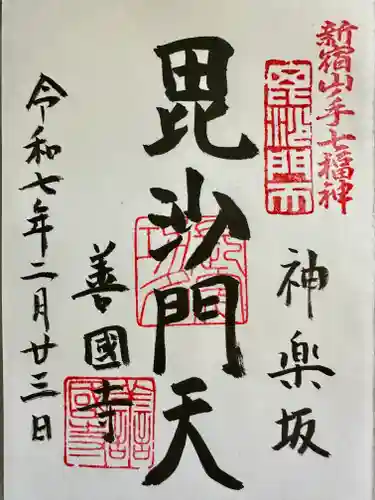 新宿山ノ手七福神
毘沙門天
神楽坂
毘沙門天
善國寺
令和七年二月廿三日